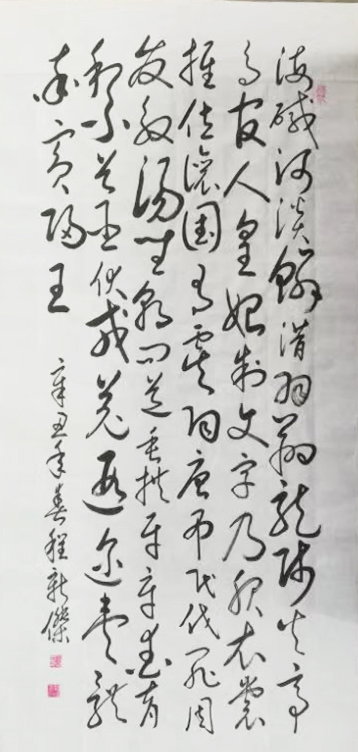 海鹹河淡鱗潛羽翔龍師火帝
鳥官人皇始制文字乃服衣裳
推位讓國有虞陶唐弔民伐罪周
發殷湯坐朝問道垂拱平章愛育
黎首臣伏戎羌遐邇壹體
率賓歸王
辛丑年春程新傑